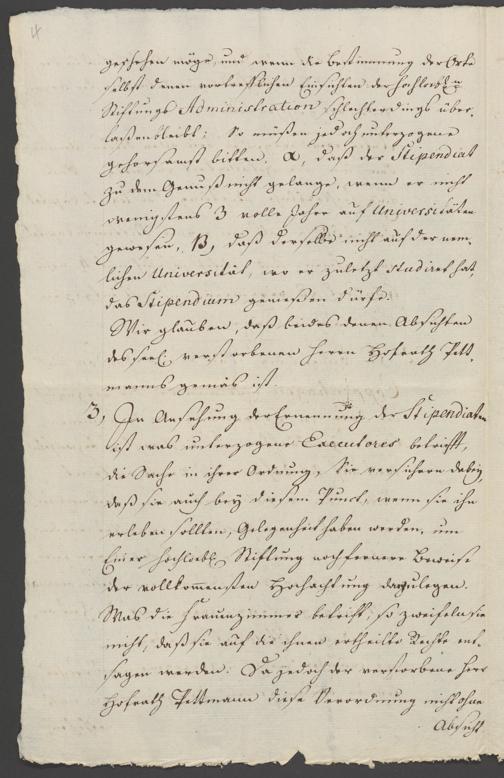 4
geschehen möge, und wenn die Bestimmung der Orte
selbst denen vortrefflichen Einsichten der Hochlöbl.
Stiftungs Administration schlechterdings über-
laßen bleibt; so müßen jedoch unterzogene
gehorsamst bitten, a, daß der Stipendiat
zu dem Genuß nicht gelange, wenn er nicht
wenigstens 3 volle Jahre auf Universitäten
gewesen, B, daß derselbe nicht auf der nem-
lichen Universität, wo er zuletzt studiret hat,
das Stipendium genießen dürfe.
Wir glauben, daß beides denen Absichten
des seel. verstorbenen Herrn Hofrath Pütt-
manns gemäs ist
3, In Ansehung der Ernennung der Stipendiaten
ist was unterzogene Executores betrifft,
die Sache in ihrer Ordnung, Sie versichern dabey,
daß sie auch bey diesem Punct, wenn sie ihn
erleben sollten, Gelegenheit haben werden, um
Einer Hochloebl. Stiftung noch fernere Beweise
der vollkommensten Hochachtung darzulegen.
Was die Frauenzimmer betrift, so zweifeln sie
nicht, daß sie auf die ihnen ertheilte Rechte ent-
sagen werden. Da jedoch der verstorbene Herr
Hofrath Püttmann diese Verordnung nicht ohne
Absicht